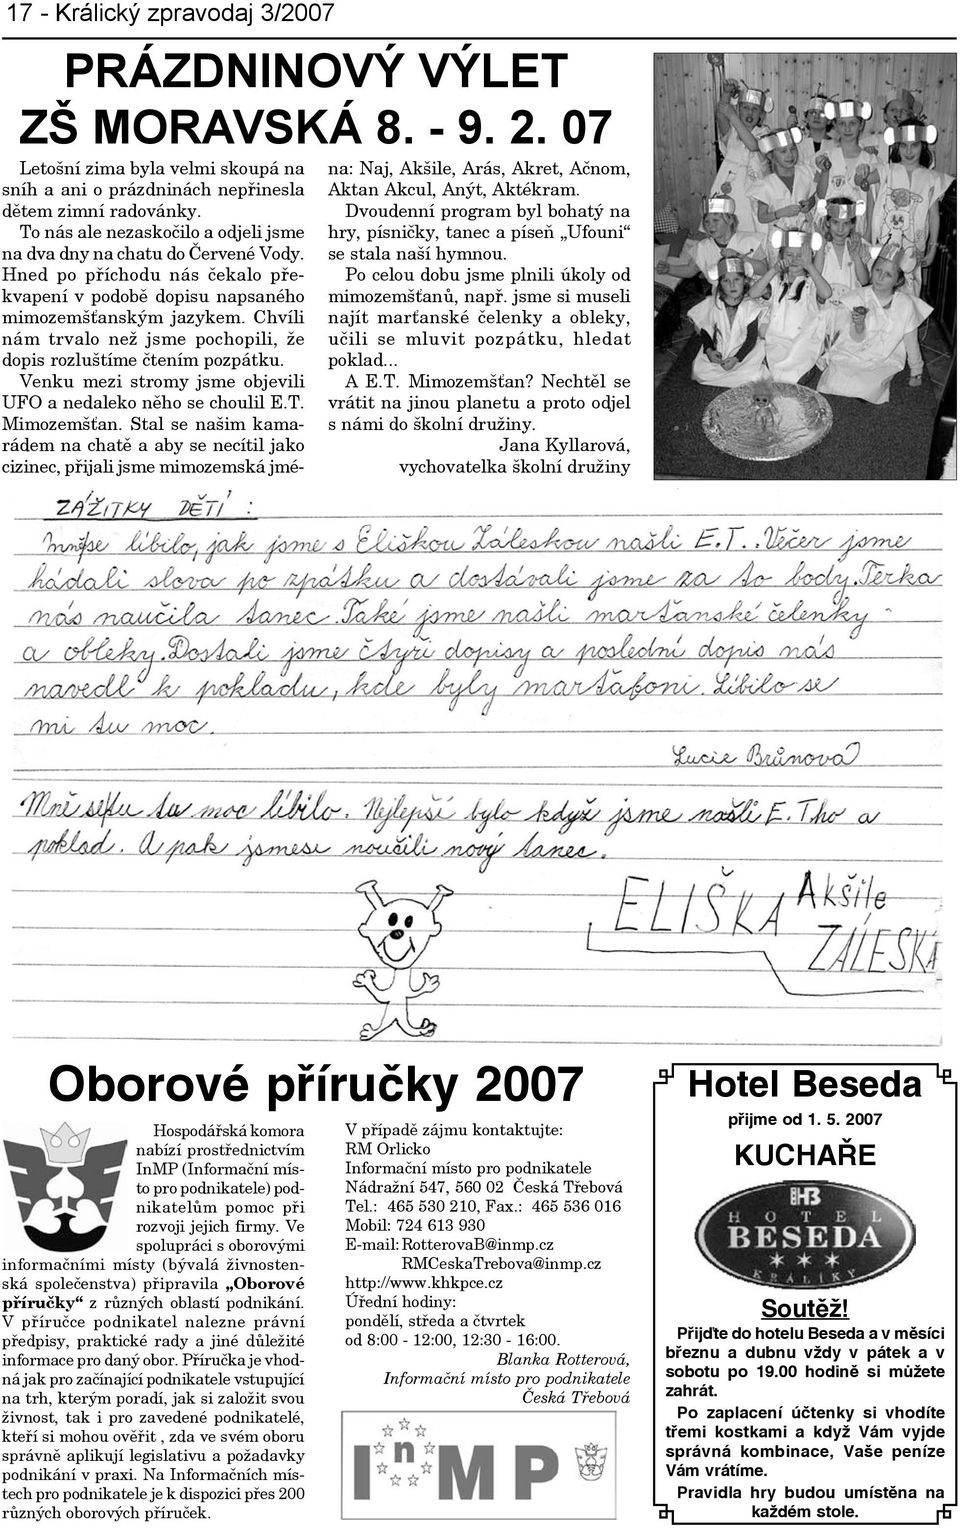 17 - Králický zpravodaj 3/2007
PRÁZDNINOVÝ VÝLET
ZŠ MORAVSKÁ 8. - 9. 2. 07
Letošní zima byla velmi skoupá na
sníh a ani o prázdninách nepřinesla
dětem zimní radovánky.
To nás ale nezaskočilo a odjeli jsme
na dva dny na chatu do Červené Vody.
Hned po příchodu nás čekalo pře-
kvapení v podobě dopisu napsaného
mimozemšťanským jazykem. Chvíli
nám trvalo než jsme pochopili, že
dopis rozluštíme čtením pozpátku.
Venku mezi stromy jsme objevili
UFO a nedaleko něho se choulil E.T.
Mimozemšťan. Stal se našim kama-
rádem na chatě a aby se necítil jako
cizinec, přijali jsme mimozemská jmé-
na: Naj, Akšile, Arás, Akret, Ačnom,
Aktan Akcul, Anýt, Aktékram.
Dvoudenní program byl bohatý na
hry, písničky, tanec a píseň „Ufouni“
se stala naší hymnou.
Po celou dobu jsme plnili úkoly od
mimozemšťanů, např. jsme si museli
najít marťanské čelenky a obleky,
učili se mluvit pozpátku, hledat
poklad...
A E.T. Mimozemšťan? Nechtěl se
vrátit na jinou planetu a proto odjel
s námi do školní družiny.
Jana Kyllarová,
vychovatelka školní družiny
ZÁŽITKY DĚTÍ :
Mně se líbilo, jak jsme s Eliškou Záleskou našli E.T.. Večer jsme
hádali slova po zpátku a dostávali jsme za to body. Terka
nás naučila tanec. Také jsme našli marťanské čelenky
a obleky. Dostali jsme čtyři dopisy a poslední dopis nás
navedl k pokladu, kde byly marťafoni. Líbilo se
mi tu moc.
Lucie Brůnová
Mně se tu moc líbilo. Nejlepší bylo když jsme našli E. Tho a
poklad. A pak jsme se naučili nový tanec.
ELIŠKA Akšile
ZÁLESKÁ
Oborové příručky 2007
Hospodářská komora
nabízí prostřednictvím
InMP (Informační mís-
to pro podnikatele) pod-
nikatelům pomoc při
rozvoji jejich firmy. Ve
spolupráci s oborovými
informačními místy (bývalá živnosten-
ská společenstva) připravila „Oborové
příručky“ z různých oblastí podnikání.
V příručce podnikatel nalezne právní
předpisy, praktické rady a jiné důležité
informace pro daný obor. Příručka je vhod-
ná jak pro začínající podnikatele vstupující
na trh, kterým poradí, jak si založit svou
živnost, tak i pro zavedené podnikatelé,
kteří si mohou ověřit , zda ve svém oboru
správně aplikují legislativu a požadavky
podnikání v praxi. Na Informačních mís-
tech pro podnikatele je k dispozici přes 200
různých oborových příruček.
V případě zájmu kontaktujte:
RM Orlicko
Informační místo pro podnikatele
Nádražní 547, 560 02 Česká Třebová
Tel.: 465 530 210, Fax.: 465 536 016
Mobil: 724 613 930
E-mail: RotterovaB@inmp.cz
RMCeskaTrebova@inmp.cz
http://www.khkpce.cz
Úřední hodiny:
pondělí, středa a čtvrtek
od 8:00 - 12:00, 12:30 - 16:00.
Blanka Rotterová,
Informační místo pro podnikatele
Česká Třebová
InMP
Hotel Beseda
přijme od 1. 5. 2007
KUCHAŘE
HB
HOTEL
BESEDA
KRÁLÍKY
Soutěž!
Přijďte do hotelu Beseda a v měsíci
březnu a dubnu vždy v pátek a v
sobotu po 19.00 hodině si můžete
zahrát.
Po zaplacení účtenky si vhodíte
třemi kostkami a když Vám vyjde
správná kombinace, Vaše peníze
Vám vrátíme.
Pravidla hry budou umístěna na
každém stole.